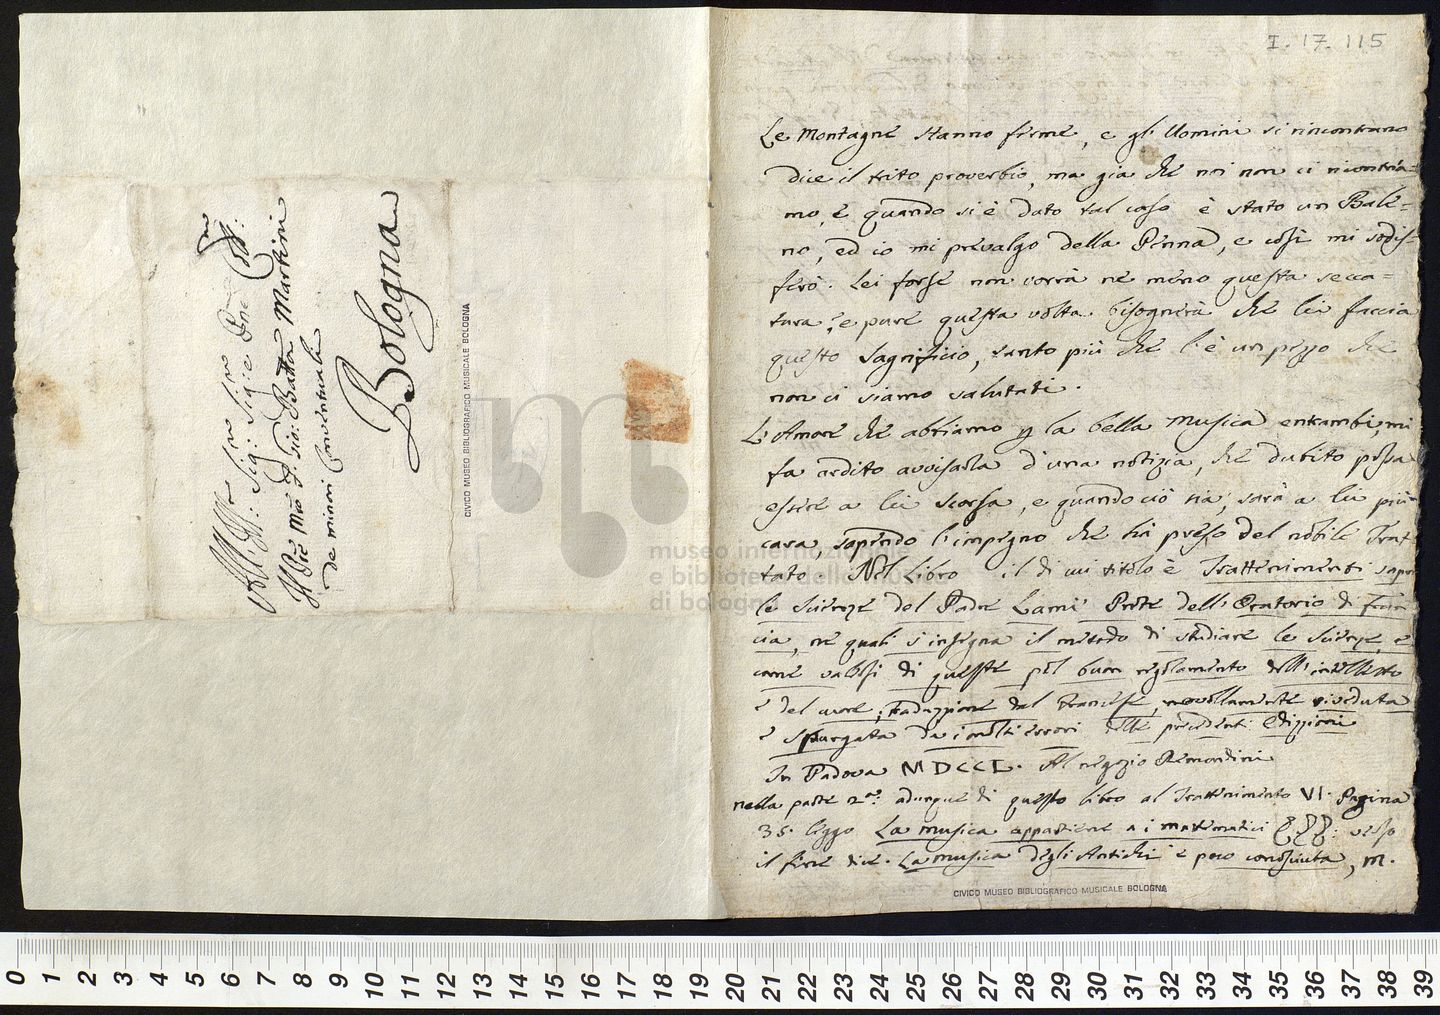 I. 17. 115
All Ill.re Sig.re Sig.re Pne Coll:mo
Il P're M'ro F. Gio: Batta Martini
De minori Conventuali
Bologna
CIVICO MUSEO BIBLIOGRAFICO MUSICALE BOLOGNA
museo internazionale
e biblioteca della musica
di bologna
Le Montagne stanno ferme, e gl' Uomini si rincontrano
dice il trito proverbio, ma gia che noi non ci ricontria=
mo, e quando si è dato tal caso è stato un Bale=
no, ed io mi prevalgo della Penna, e così mi sodis=
ferò. Lei forse non vorrà ne meno questa secca=
tura, e pure questa volta bisognerà che lei faccia
questo Sagrificio, tanto più che l'è un pezzo che
non ci siamo salutati.
L'Amore che abbiamo p la bella Musica entrambi, mi
fa ardito avvisarla d'una notizia, che dubito possa
essere a lei scorsa, e quando ciò sia, sarà a lei più
cara, sapendo l'impegno che hà preso del nobile Trat
tato. Nel Libro il di cui titolo è Trattenimenti sopra
le Scienze del Padre Lamì Prete dell' Oratorio di Fran
cia, ne quali s'insegna il metodo di studiare le Scienze, e
come valersi di queste pel buon regolamento dell' intelletto
e del cuore, traduzzione dal Francese, novellamente riveduta
e spurgata da i molti errori delle precedenti Edizzioni
In Padova MDCCL. Al negozio Remondini
nella parte 2.a adunque di questo libro al Trattenimento VI. Pagina
35. leggo La musica appartiene a i matematici verso
il fine dice. La musica degli Antichi è poco conosciuta, m.
CIVICO MUSEO BIBLIOGRAFICO MUSICALE BOLOGNA
0 1 2 3 4 5 6 7 8 9 10 11 12 13 14 15 16 17 18 19 20 21 22 23 24 25 26 27 28 29 30 31 32 33 34 35 36 37 38 39